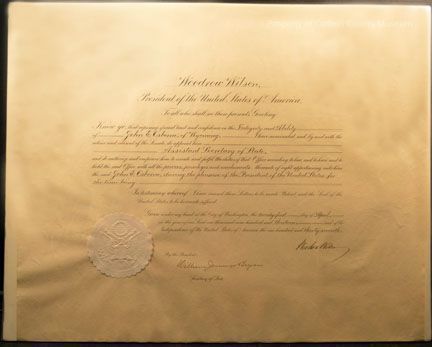 Property of Carbon County Museum
Woodrow Wilson,
President of the United States of America,
To all who shall see these presents, Greeting:
Know ye, that reposing special trust and confidence in the Integrity and Ability
of John E. Osborne, of Wyoming, I have nominated and by and with the
advice and consent of the Senate, do appoint him
Assistant Secretary of State,
and do authorize and empower him to execute and fulfil the duties of that Office according to law, and to have and to
hold the said Office with all the powers, privileges and emoluments thereunto of right appertaining unto him
the said John E. Osborne, during the pleasure of the President of the United States for
the time being.
In testimony whereof, I have caused these Letters to be made Patent, and the Seal of the
United States to be hereunto affixed.
Given under my hand at the City of Washington, the twenty-first day of April,
in the year of our Lord one thousand nine hundred and thirteen, and of the
Independence of the United States of America the one hundred and thirty-seventh.
Woodrow Wilson
By the President:
William Jennings Bryan
Secretary of State.